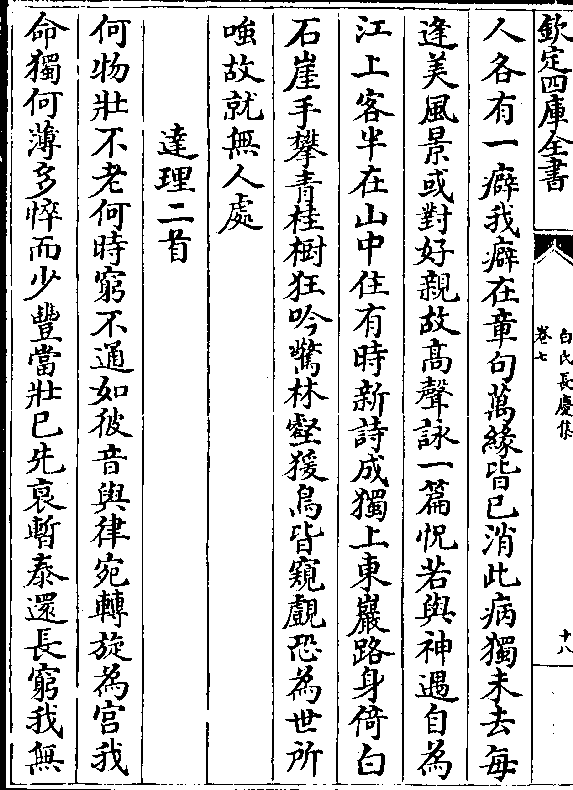 欽定四庫全書
白氏長慶集
卷七
十八
人各有一癖我癖在章句萬緣皆已消此病獨未去每
逢美風景或對好親故高聲詠一篇怳若與神遇自為
江上客半在山中住有時新詩成獨上東巖路身倚白
石崖手攀青桂樹狂吟驚林壑猨鳥皆窺覰恐為世所
嗤故就無人處
達理二首
何物壯不老何時窮不通如彼音與律宛轉旋為宮我
命獨何薄多悴而少豐當壯已先衰暫泰還長窮我無